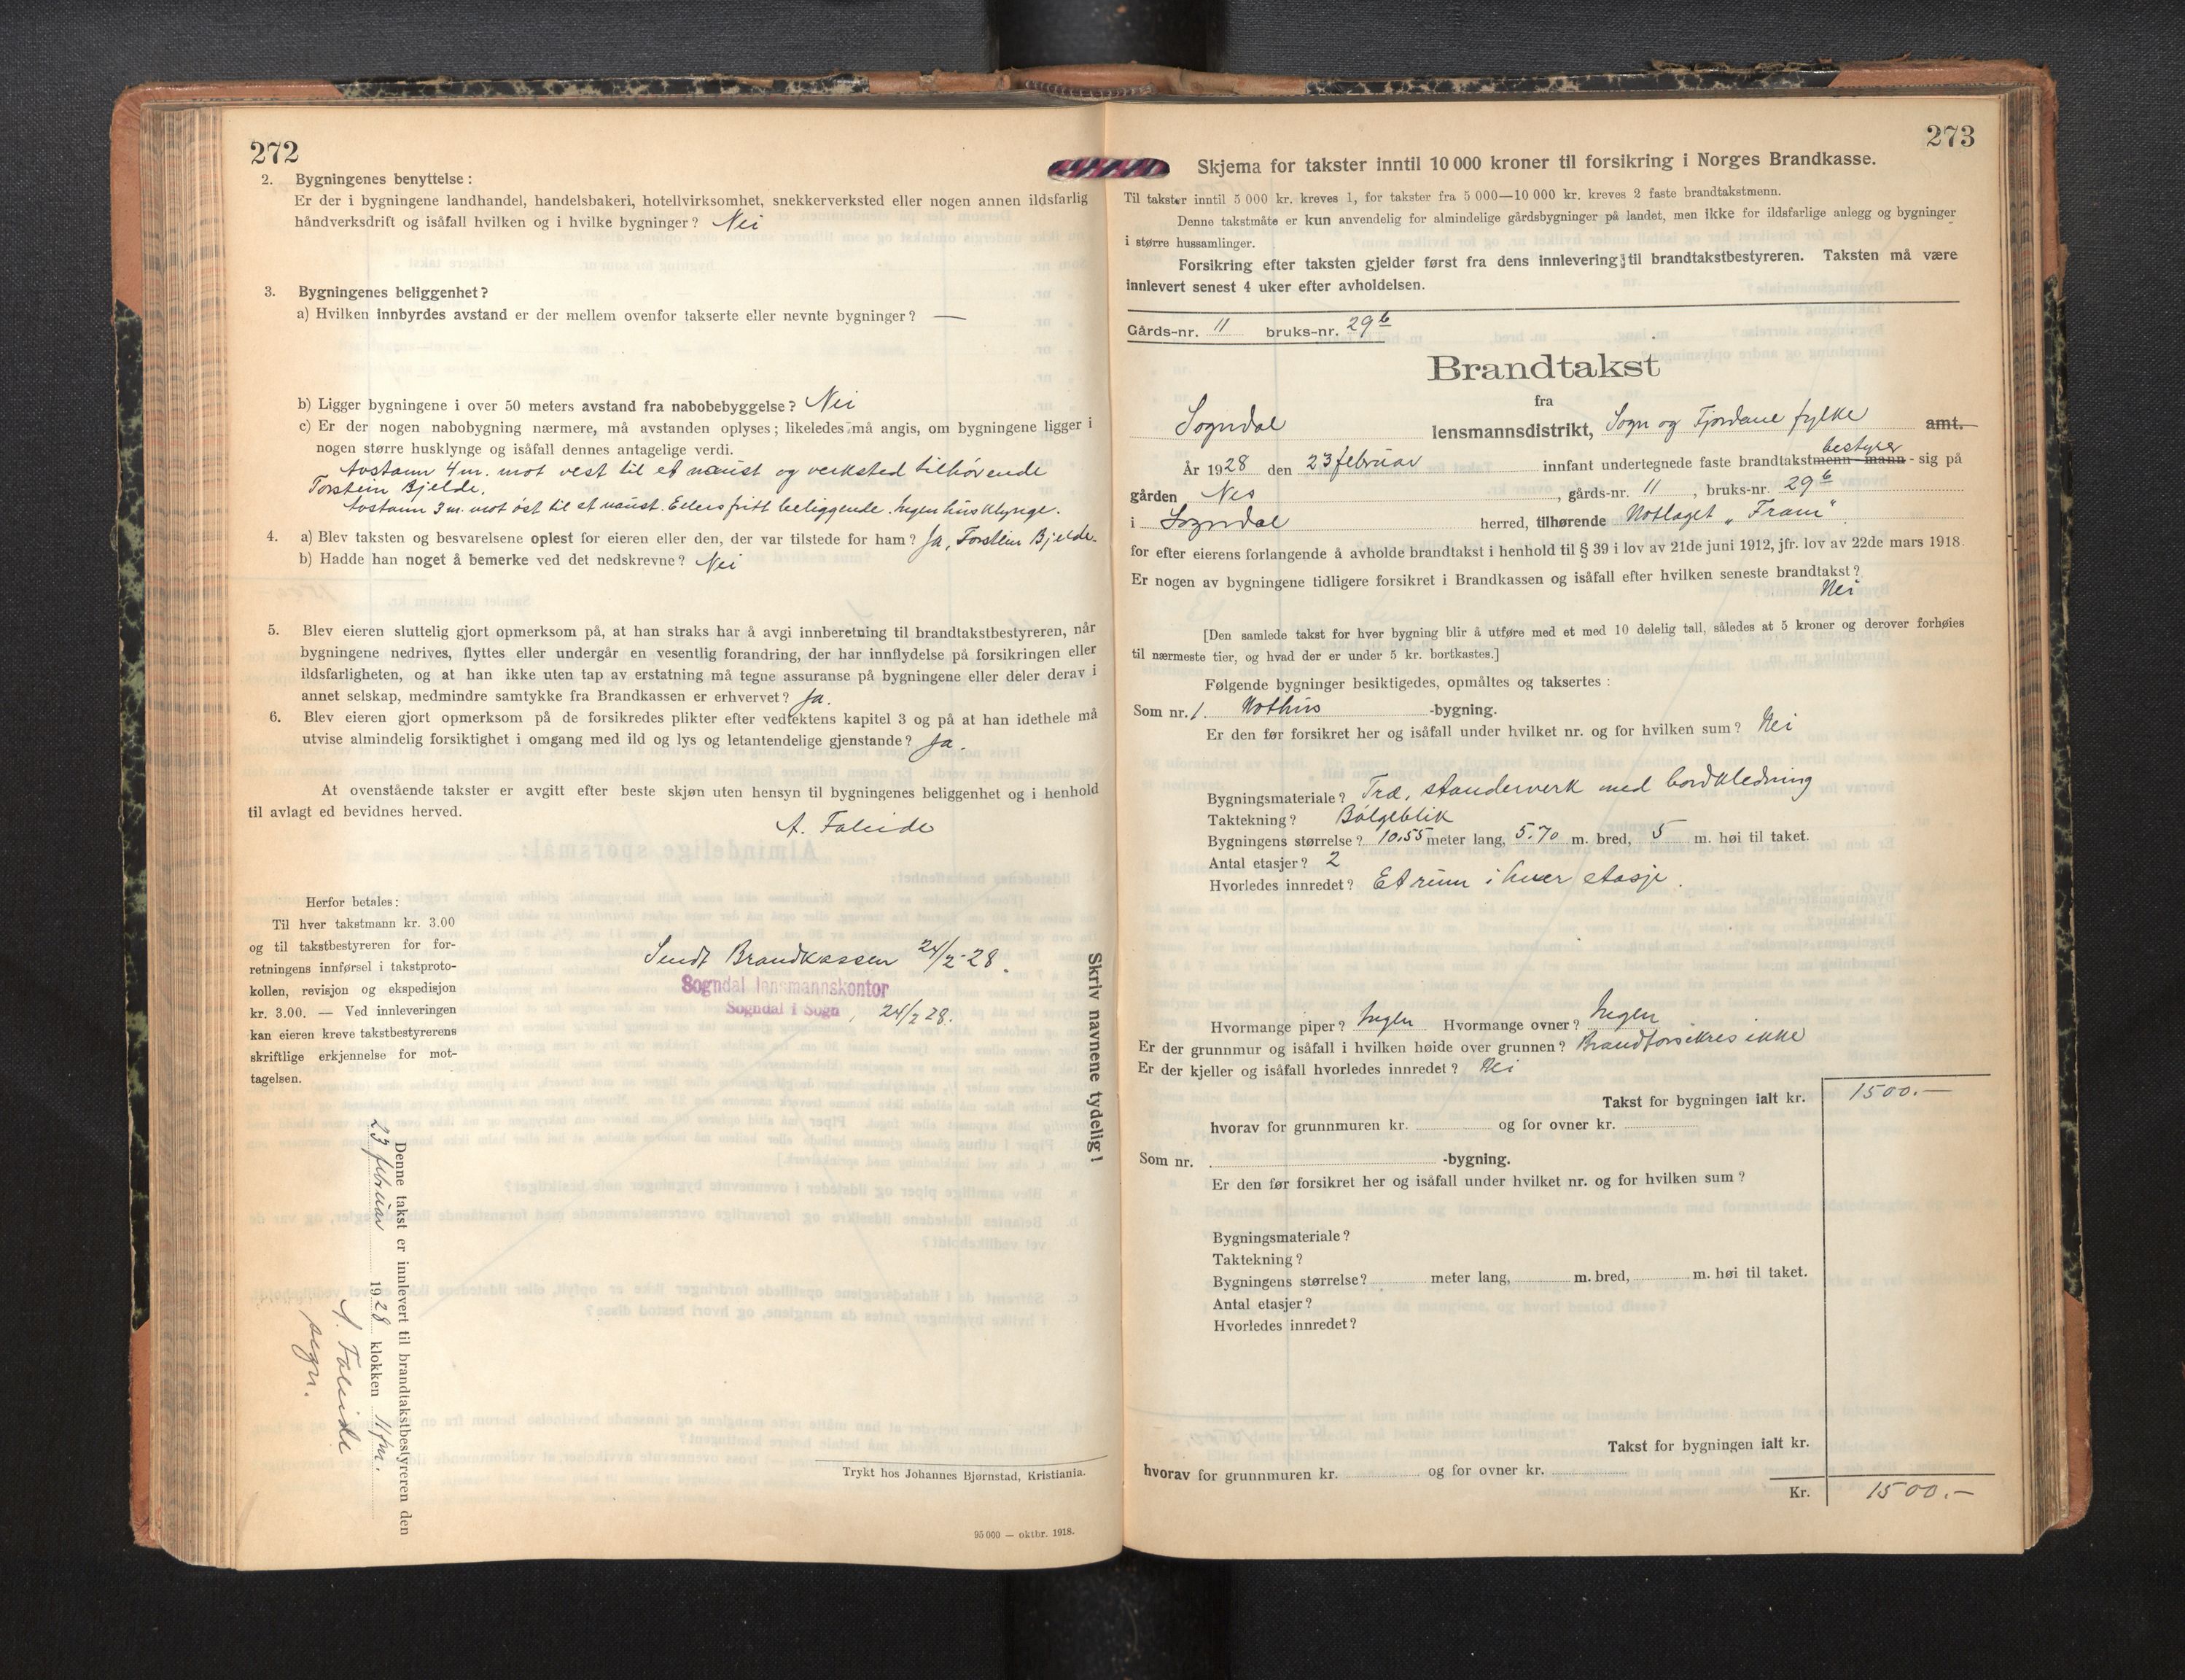 272
2. Bygningenes benyttelse:
Er der i bygningene landhandel, handelsbakeri, hotellvirksomhet, snekkerverksted eller nogen annen ildsfarlig
håndverksdrift og isåfall hvilken og i hvilke bygninger? Nei
3. Bygningenes beliggenhet?
a) Hvilken innbyrdes avstand er der mellem ovenfor takserte eller nevnte bygninger? —
b) Ligger bygningene i over 50 meters avstand fra nabobebyggelse? Nei
c) Er der nogen nabobygning nærmere, må avstanden oplyses; likeledes må angis, om bygningene ligger i
nogen større husklynge og isåfall dennes antagelige verdi.
Avstann 4 m. mot vest til et naust og verksted tilhörende
Torstein Bjelde.
Avstann 3 m. mot öst til et naust. Ellers fritt beliggende. Ingen husklynge.
4. a) Blev taksten og besvarelsene oplest for eieren eller den, der var tilstede for ham? Ja, Torstein Bjelde.
b) Hadde han noget å bemerke ved det nedskrevne? Nei
5. Blev eieren sluttelig gjort opmerksom på, at han straks har å avgi innberetning til brandtakstbestyreren, når
bygningene nedrives, flyttes eller undergår en vesentlig forandring, der har innflydelse på forsikringen eller
ildsfarligheten, og at han ikke uten tap av erstatning må tegne assuranse på bygningene eller deler derav i
annet selskap, medmindre samtykke fra Brandkassen er erhvervet? Ja.
6. Blev eieren gjort opmerksom på de forsikredes plikter efter vedtektens kapitel 3 og på at han idethele må
utvise almindelig forsiktighet i omgang med ild og lys og letantendelige gjenstande? Ja.
At ovenstående takster er avgitt efter beste skjøn uten hensyn til bygningenes beliggenhet og i henhold
til avlagt ed bevidnes herved.
A. Faleide
Herfor betales:
Til hver takstmann kr. 3.00
og til takstbestyreren for for-
retningens innførsel i takstproto-
kollen, revisjon og ekspedisjon
kr. 3.00. — Ved innleveringen
kan eieren kreve takstbestyrerens
skriftlige erkjennelse for mot-
tagelsen.
Sendt Brandkassen 24/2-28.
Sogndal lensmannskontor
Sogndal i Sogn, 24/2 28.
Skriv navnene tydelig!
Denne takst er innlevert til brandtakstbestyreren den
23 februar 1928 klokken 11 fm.
A. Faleide
sogn.
Trykt hos Johannes Bjørnstad, Kristiania.
95 000 — oktbr. 1918.
273
Skjema for takster inntil 10 000 kroner til forsikring i Norges Brandkasse.
Til takster inntil 5 000 kr. kreves 1, for takster fra 5 000—10 000 kr. kreves 2 faste brandtakstmenn.
Denne takstmåte er kun anvendelig for almindelige gårdsbygninger på landet, men ikke for ildsfarlige anlegg og bygninger
i større hussamlinger.
Forsikring efter taksten gjelder først fra dens innlevering til brandtakstbestyreren. Taksten må være
innlevert senest 4 uker efter avholdelsen.
Gårds-nr. 11 bruks-nr. 29 b
Brandtakst
fra
Sogndal lensmannsdistrikt, Sogn og Fjordane fylke amt.
bestyrer
År 1928 den 23 februar innfant undertegnede faste brandtakstmenn - mann - sig på
gården Nes, gårds-nr. 11, bruks-nr. 29 b
i Sogndal herred, tilhørende Notlaget „Fram“.
for efter eierens forlangende å avholde brandtakst i henhold til § 39 i lov av 21de juni 1912, jfr. lov av 22de mars 1918.
Er nogen av bygningene tidligere forsikret i Brandkassen og isåfall efter hvilken seneste brandtakst?
Nei
[Den samlede takst for hver bygning blir å utføre med et med 10 delelig tall, således at 5 kroner og derover forhøies
til nærmeste tier, og hvad der er under 5 kr. bortkastes.]
Følgende bygninger besiktigedes, opmåltes og taksertes:
Som nr. 1. Nothus -bygning.
Er den før forsikret her og isåfall under hvilket nr. og for hvilken sum? Nei
Bygningsmateriale? Træ, standerverk med bordkledning
Taktekning? Bölgeblik
Bygningens størrelse? 10.55 meter lang, 5.70 m. bred, 5 m. høi til taket.
Antal etasjer? 2
Hvorledes innredet? Et rum i hver etasje.
Hvormange piper? Ingen Hvormange ovner? Ingen
Er der grunnmur og isåfall i hvilken høide over grunnen? Brandforsikres ikke
Er der kjeller og isåfall hvorledes innredet? Nei
Takst for bygningen ialt kr. 1500.—
hvorav for grunnmuren kr. og for ovner kr.
Som nr. -bygning.
Er den før forsikret her og isåfall under hvilket nr. og for hvilken sum?
Bygningsmateriale?
Taktekning?
Bygningens størrelse? meter lang, m. bred, m. høi til taket.
Antal etasjer?
Hvorledes innredet?
Takst for bygningen ialt kr.
hvorav for grunnmuren kr. og for ovner kr.
Kr. 1500.—